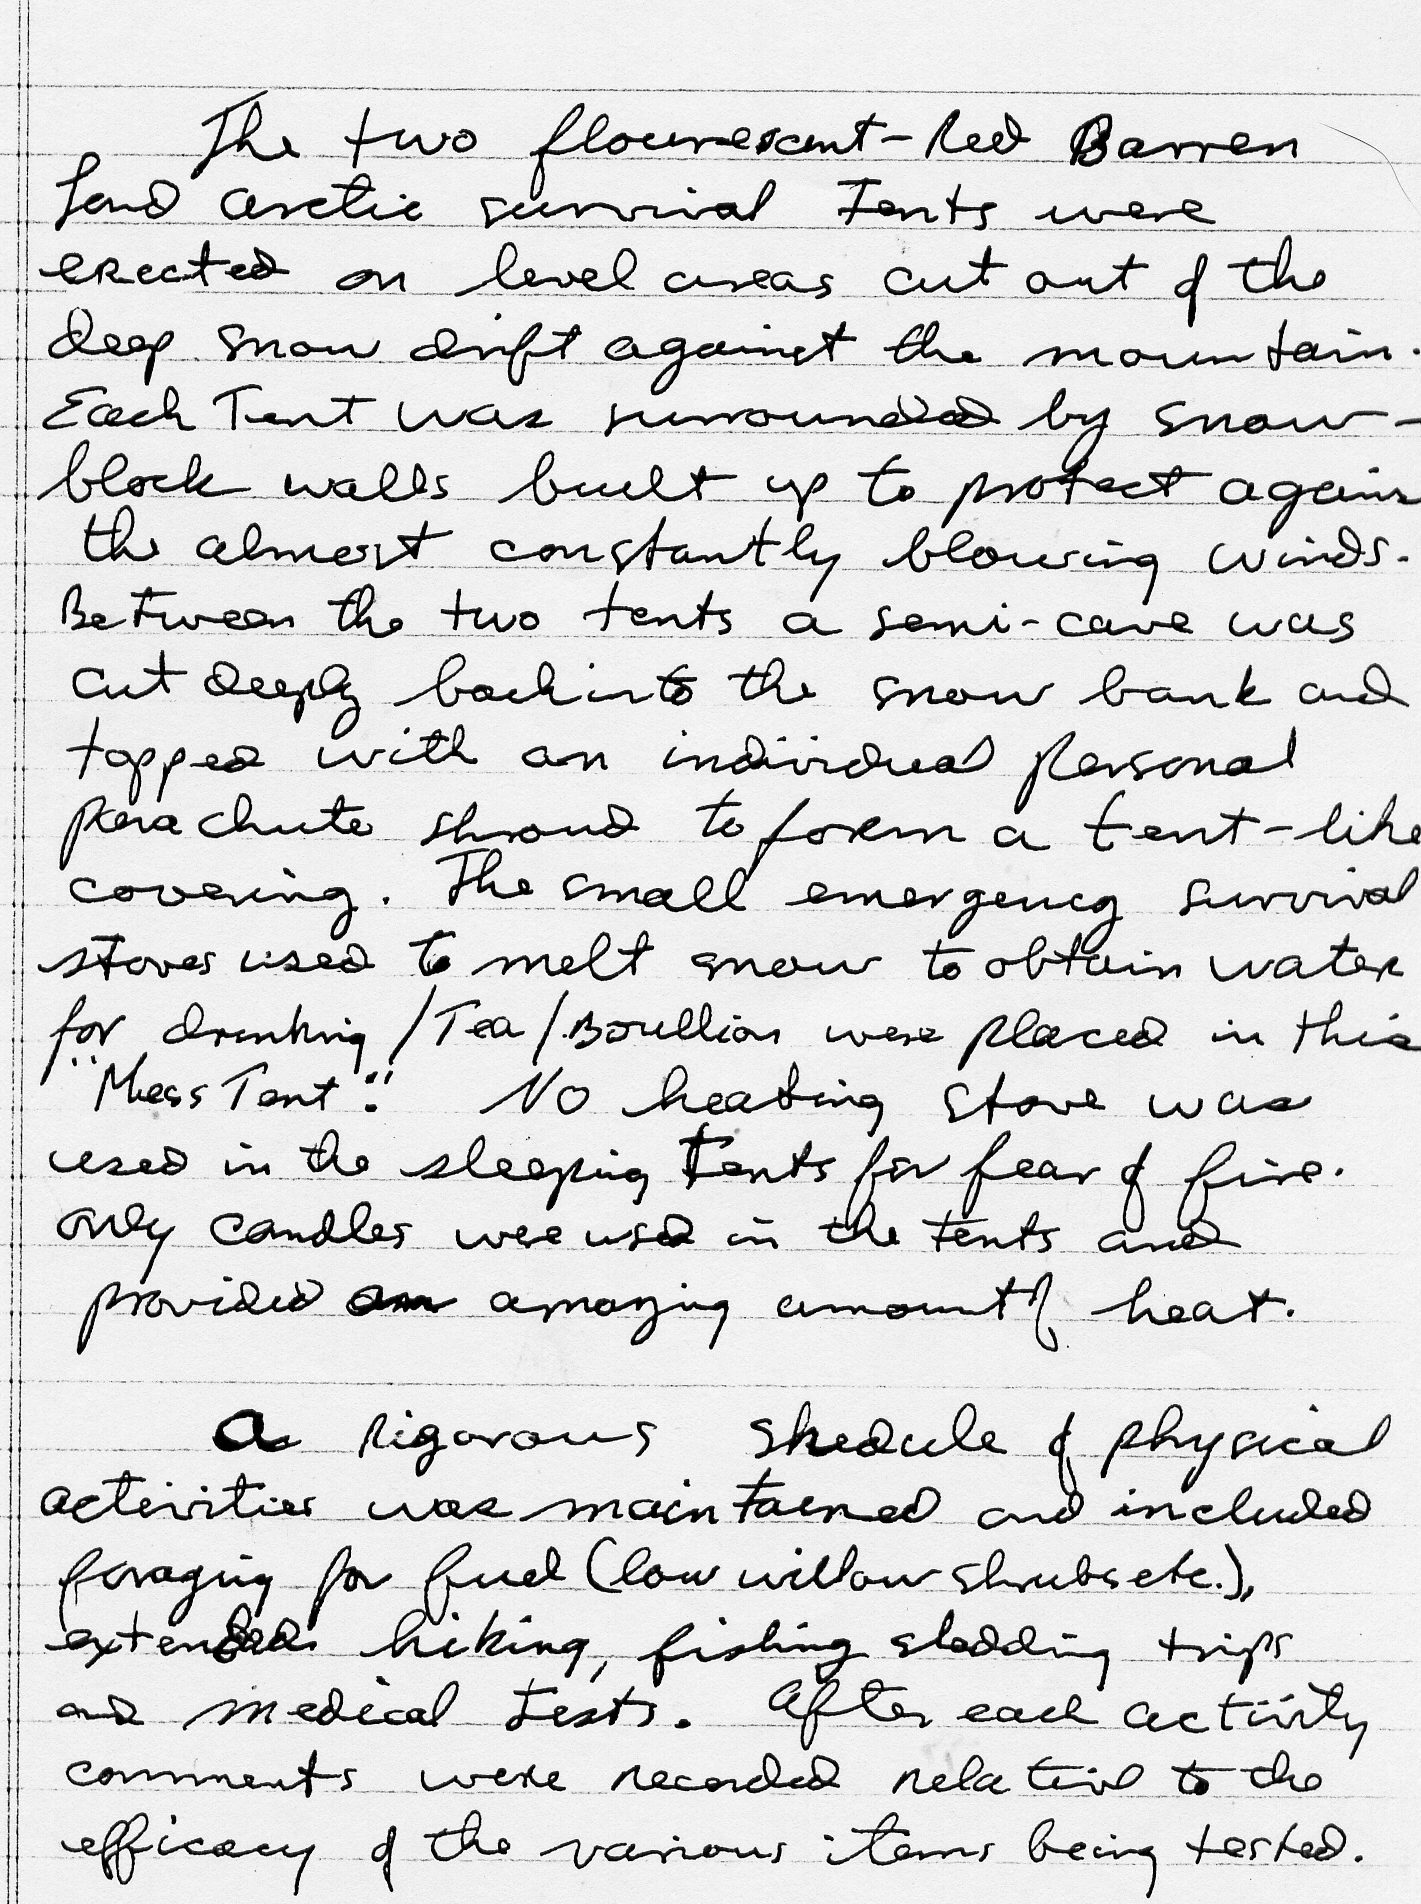 The two flourescent-Red Barren
Land arctic survival Tents were
erected on level areas cut out of the
deep snow drift against the mountain.
Each Tent was surrounded by snow-
block walls built up to protect agains
the almost constantly blowing winds.
Between the two tents a semi-cave was
cut deeply back into the snow bank and
topped with an individual personal
parachute shroud to form a tent-like
covering. The small emergency survival
stoves used to melt snow to obtain water
for drinking/Tea/Boullion were placed in this
"Mess Tent". No heating stove was
used in the sleeping Tents for fear of fire.
only candles were used in the tents and
provided an amazing amount of heat.
A rigorous shedule of physical
activities was maintained and included
foraging for fuel (low willow shrubs etc.),
extended hiking, fishing sledding trips
and medical tests. After each activity
comments were recorded relative to the
efficacy of the various items being tested.